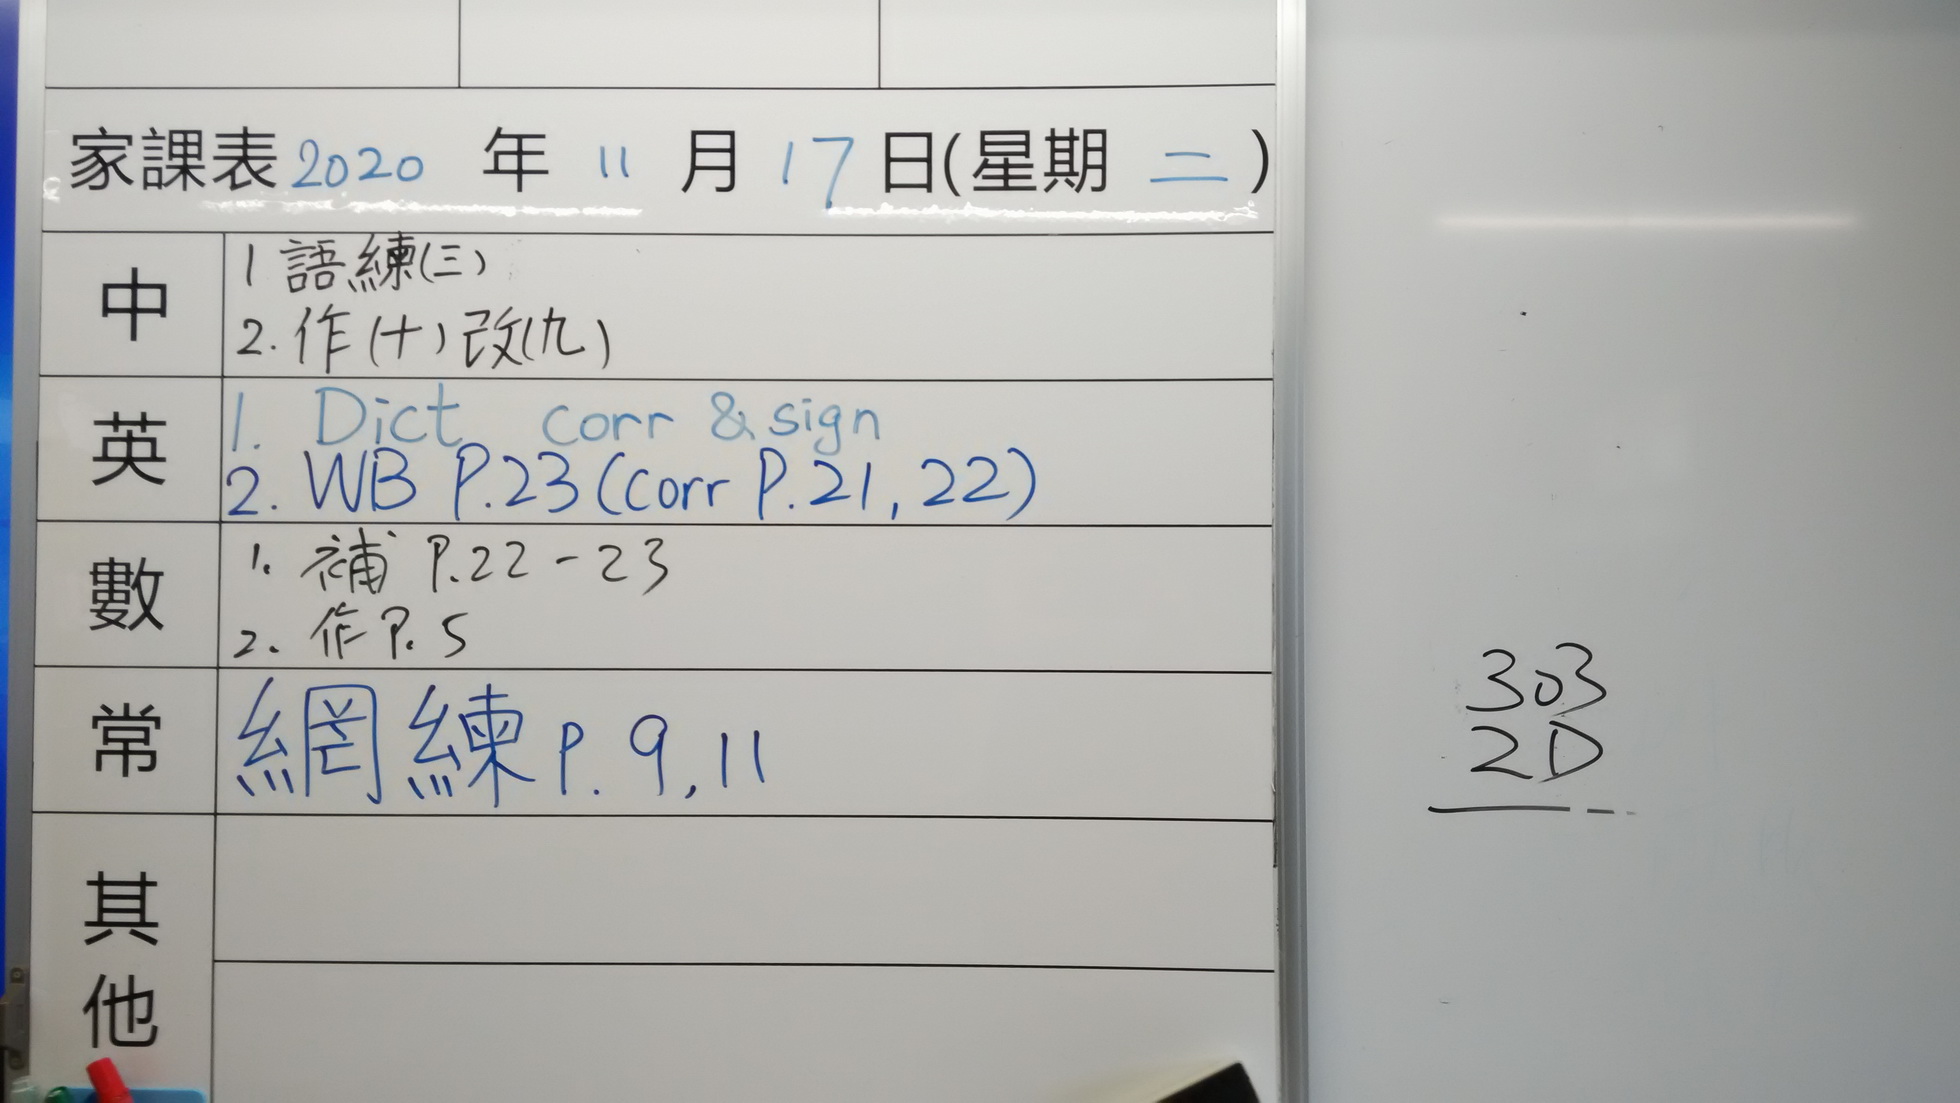 家課表2020 年 11 月 17 日(星期 二)
中
1 語練(三)
2. 作(十)改(九)
英
1. Dict corr & sign
2. WB P.23 (corr P.21, 22)
數
1. 補 P.22-23
2. 作P.5
常
網練 P. 9, 11
其他
303
2D